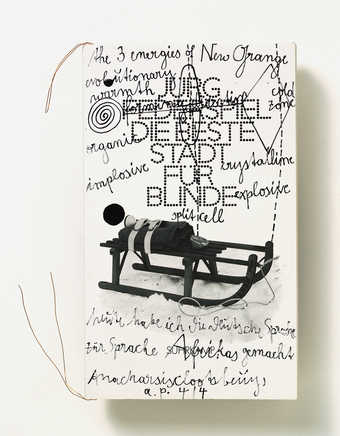 the 3 energies of New Orange
evolutionary
warmth
cold
zone
JÜRG
FEDERSPIEL
DIE BESTE
STADT
FÜR
BLINDE
organic
crystalline
implosive
explosive
split cell
heute habe ich die deutsche Sprache
zur Sprache Afrikas gemacht
Anacharsiscloots beuys
a.p. 4/4